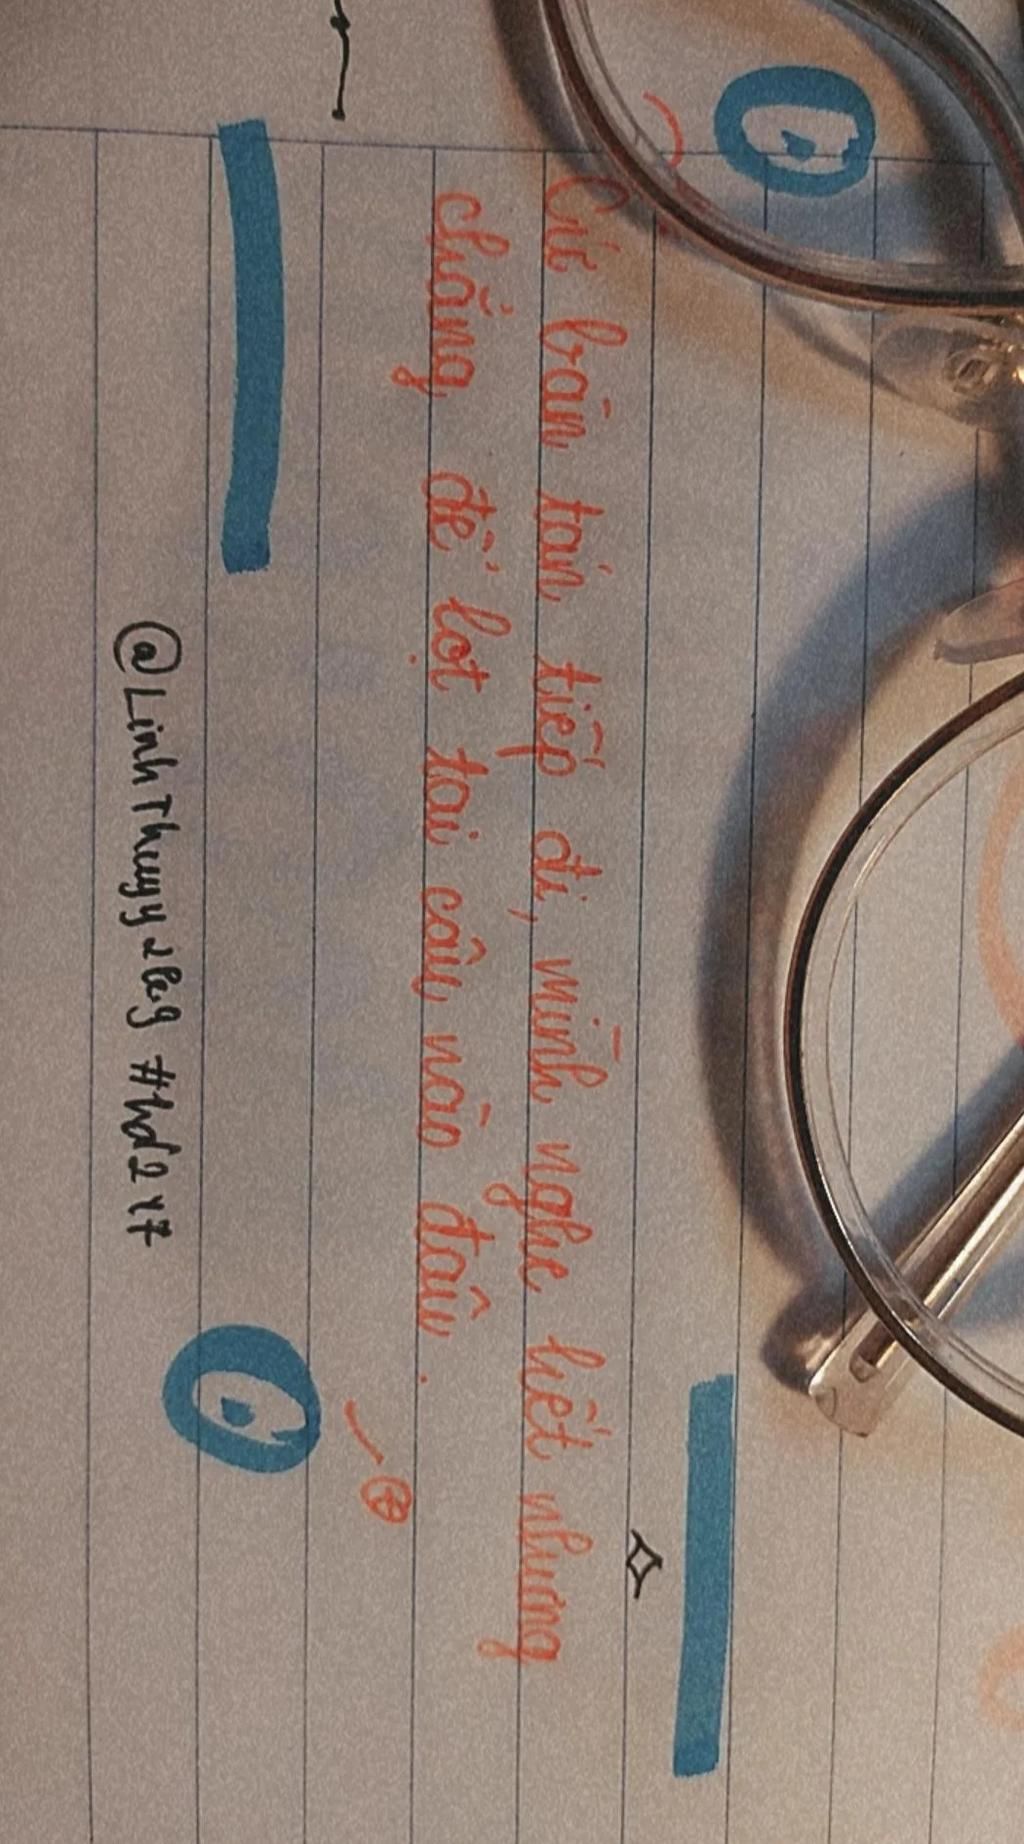 Cứ bàn tán tiếp đi, mình nghe hết nhưng
chẳng để lọt tai câu nào đâu.